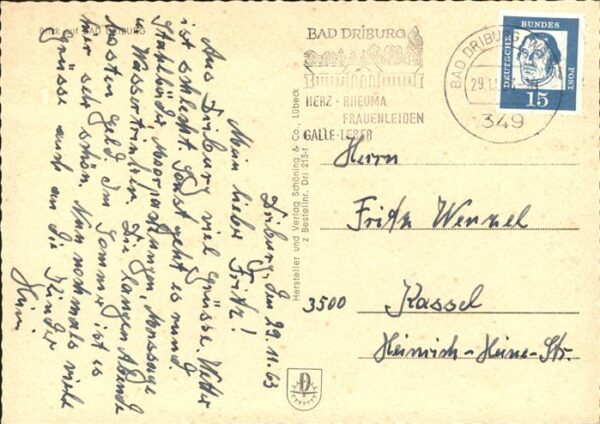 Blick auf BAD DRIBURG
Driburg, den 29.11.63
Mein lieber Fritz!
Aus Driburg viel Grüsse. Wetter
ist schlecht. Sonst geht es rund.
Stahlbäder, Moorpackungen, Massage
u. Wassertrinken. Die langen Abende
kosten Geld. Im Sommer ist es
hier sehr schön. Nun nochmals viele
Grüsse auch an die Kinder
Hersteller und Verlag Schöning & Co., Lübeck
Bestellnr. Dri 213
BAD DRIBURG
HERZ · RHEUMA
FRAUENLEIDEN
GALLE·LEBER
BAD DRIBURG
29.11.
349
DEUTSCHE
BUNDES
POST
15
Herrn
Fritz Wenzel
3500 Kassel
Heinrich-Heine-Str.